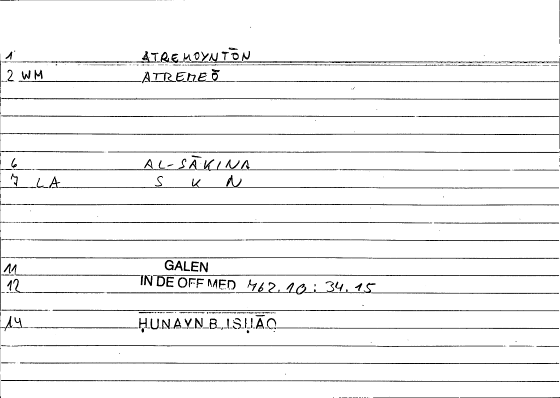 1 ATREMOYNTŌN
2 WM ATREMEŌ
6 AL-SĀKINA
7 LA S K N
11 GALEN
12 IN DE OFF MED 762.10 : 34.15
14 ḤUNAYN B. ISḤĀQ